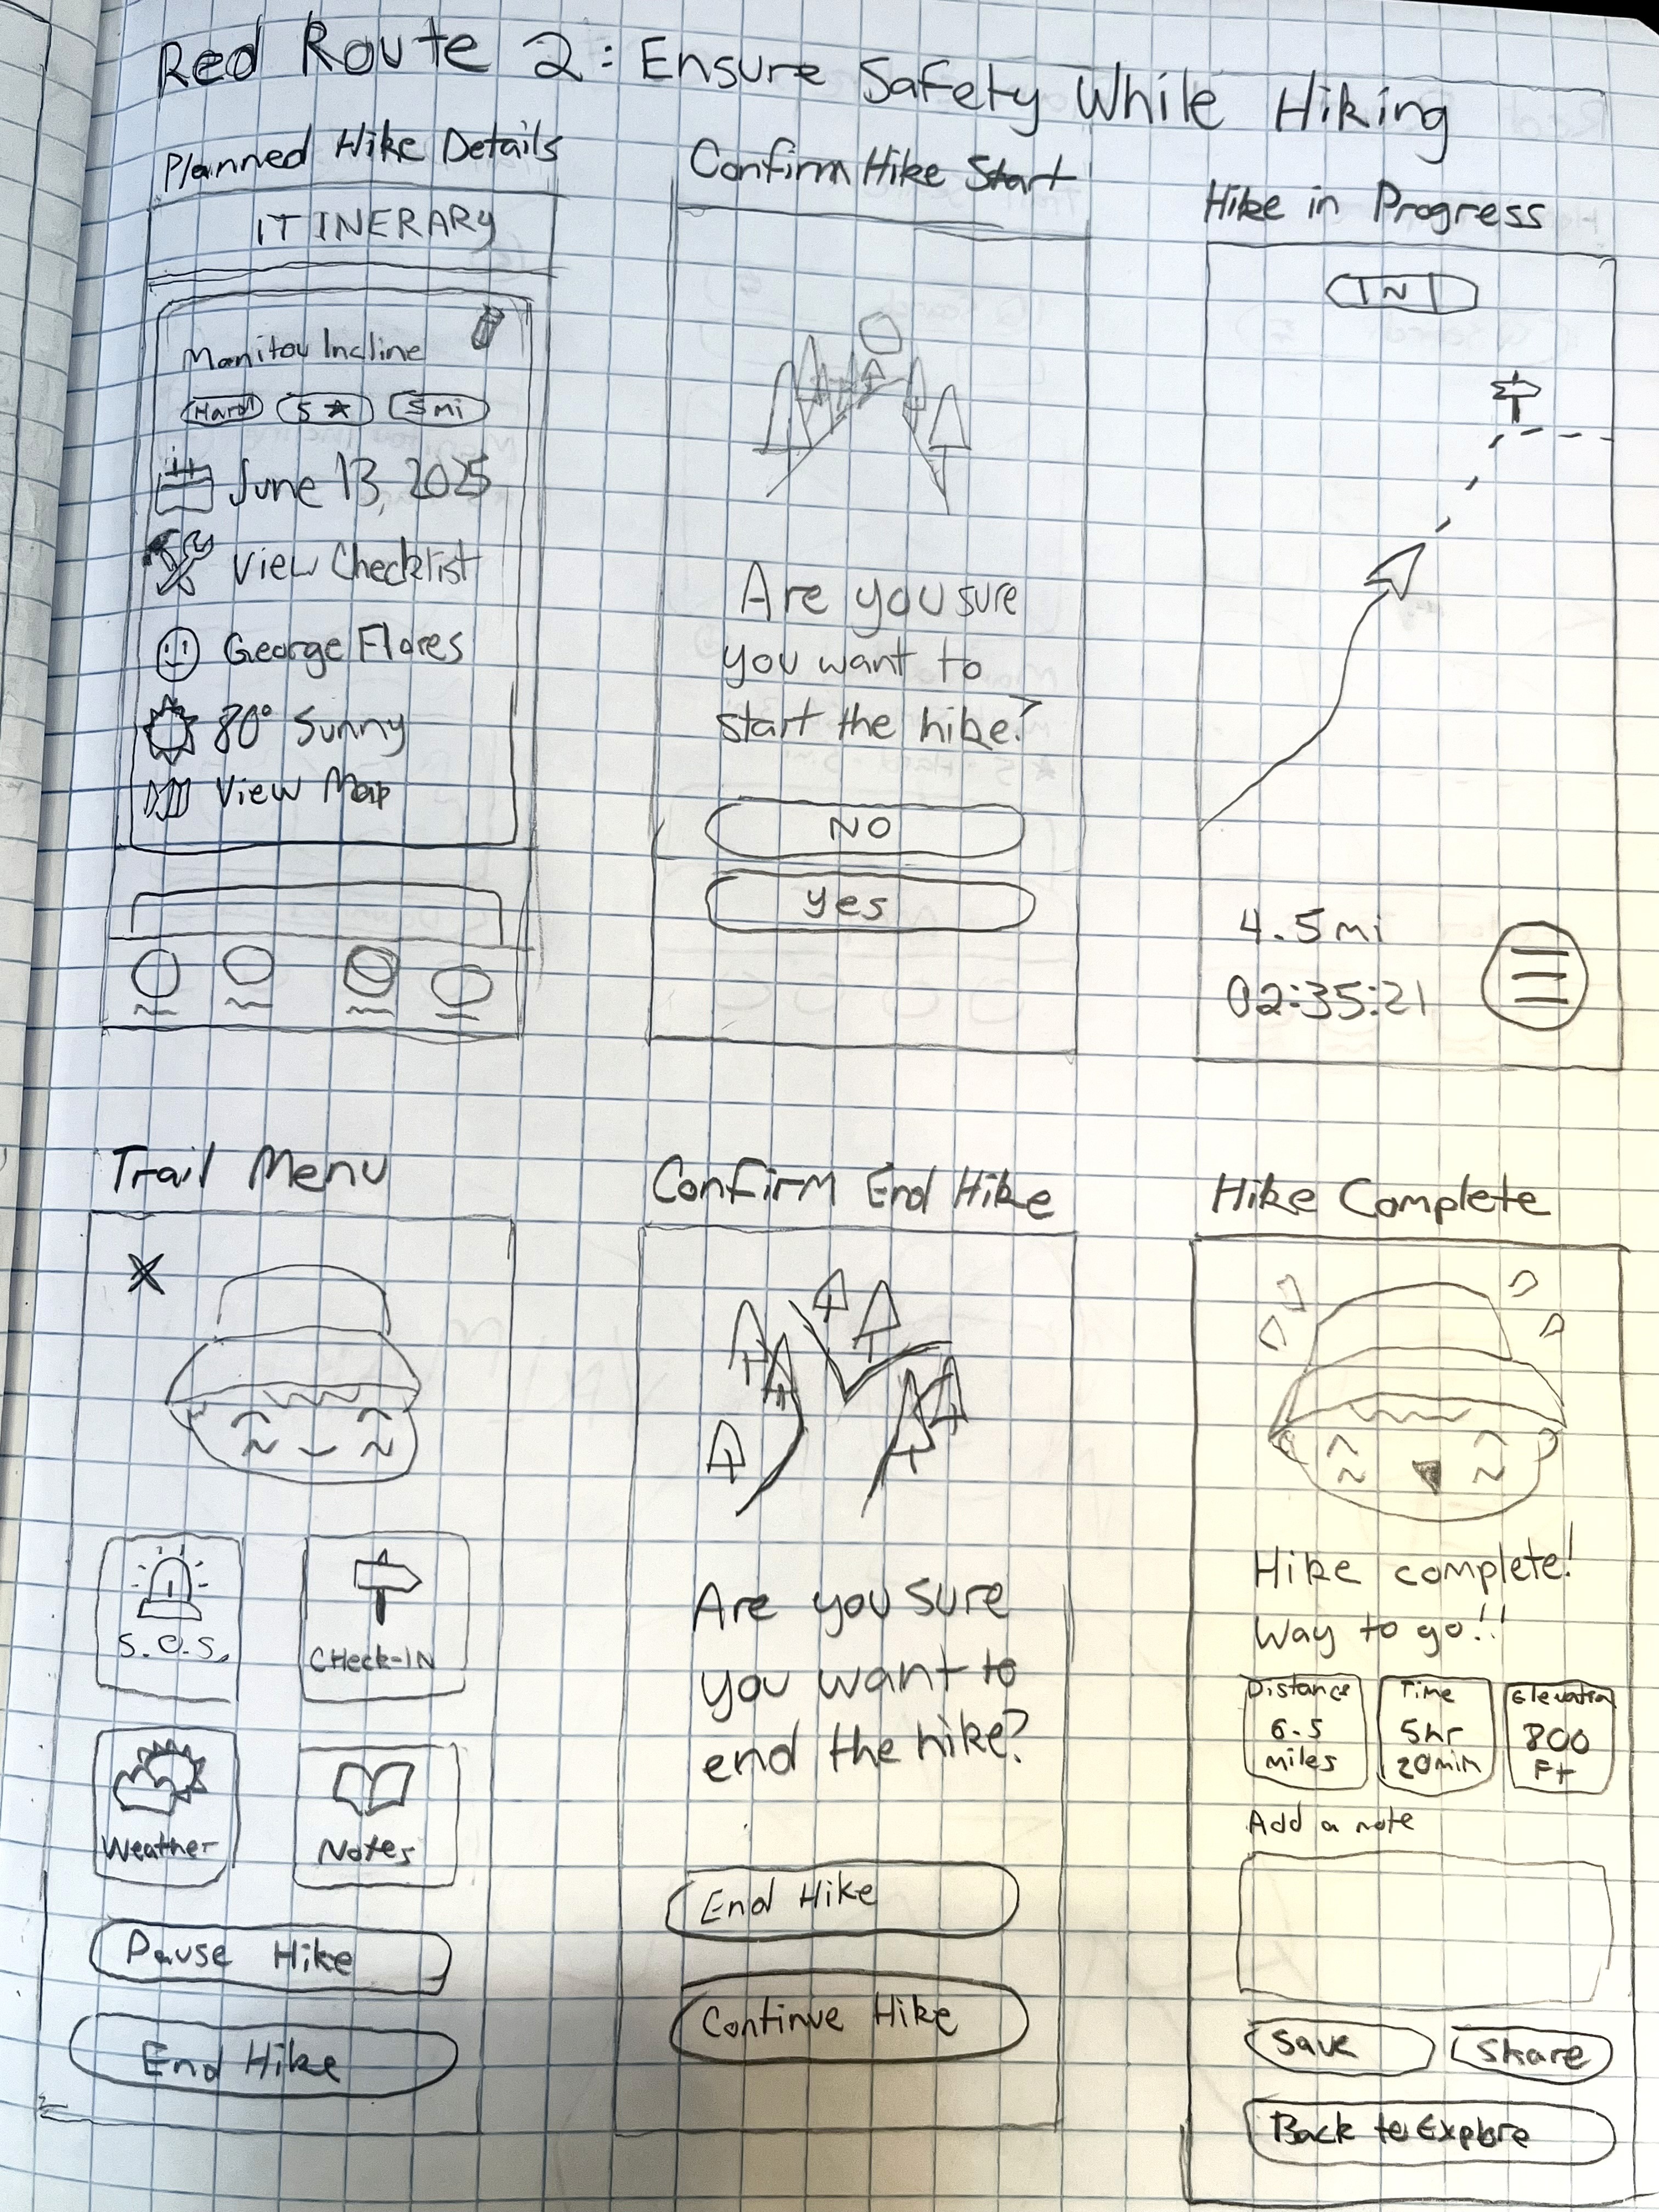 Red Route 2: Ensure Safety While Hiking
Planned Hike Details
ITINERARY
Manitou Incline
Hard
5 ★
5 mi
June 13, 2025
View Checklist
George Flores
80° Sunny
View Map
Confirm Hike Start
Are you sure
you want to
start the hike?
NO
Yes
Hike in Progress
N
4.5mi
02:35:21
Trail Menu
X
S.O.S.
CHeck-IN
Weather
Notes
Pause Hike
End Hike
Confirm End Hike
Are you sure
you want to
end the hike?
End Hike
Continue Hike
Hike Complete
Hike complete!
Way to go!!
Distance
6.5
miles
Time
5hr
20min
Elevation
800
Ft
Add a note
Save
Share
Back to Explore